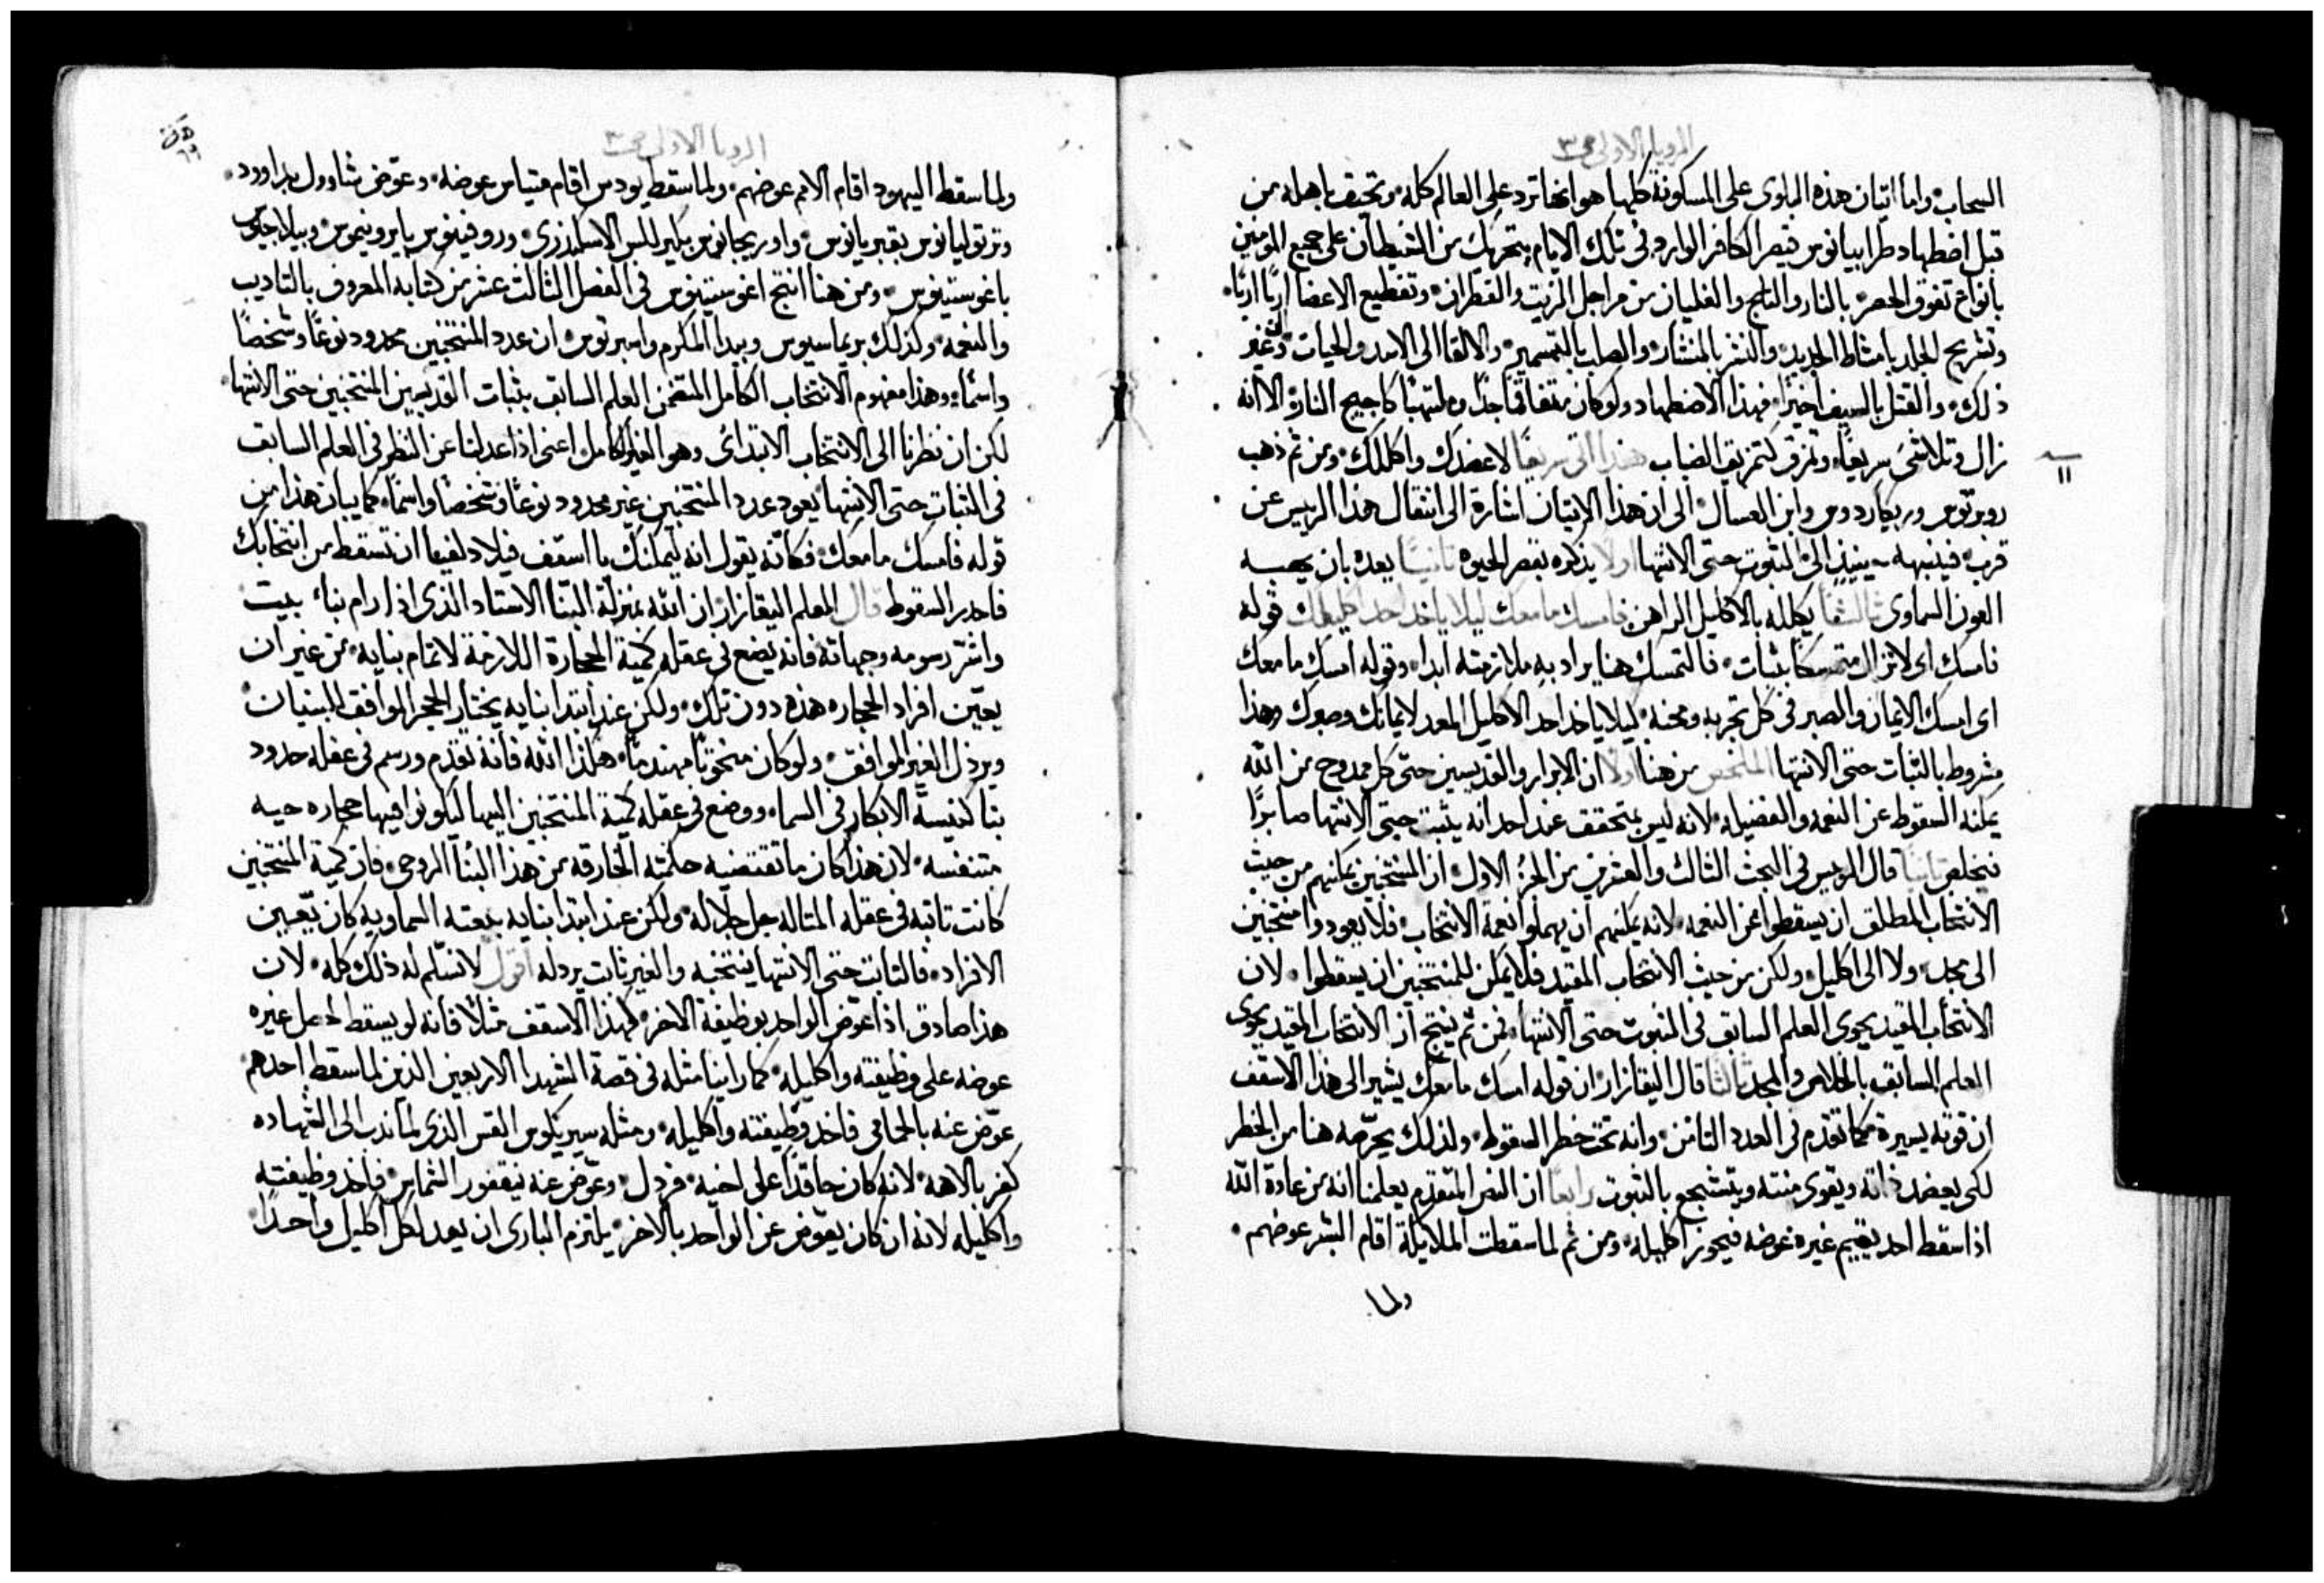 الرويا الاولى ص ٣
السحاب واما اتيان هذه البلوى على المسكونة كلها هو انها ترد على العالم كله وتحيق باهله من
قبل اضطهاد طرابيانوس قيصر الكافر الوارد في تلك الايام بتحريك من الشيطان على جميع المومنين
بانواع تفوق الحصر بالنار والثلج والغليان من مراجل الزيت والقطران وتقطيع الاعضا اربًا اربًا
وتشريح الجلد بامشاط الحديد والنشر بالمنشار والصلب بالتسمير والالقا الى الاسد والحيات وغير
ذلك والقتل بالسيف اخيرًا فهذا الاضطهاد ولو كان متفاقمًا جدًا وملتهبًا كاجيج النار الا انه
زال وتلاشى سريعًا وتمزق كتمزيق الضباب هنذا اتي سريعًا لاعضدك واكللك ومن ثم ذهب
١١
روبرتوس وريكاردوس وابن العسال الى ان هذا الاتيان اشارة الى انتقال هذا الرييس عن
قرب فينبهه حينيذ الى الثبوت حتى الانتها اولًا يذكره بقصر الحيوه ثانيًا يعده بان يهبه
العون السماوي ثالثًا يكلله بالاكليل الراهن فامسك ما معك ليلا ياخد احد اكليلك قوله
فامسك اي لا تزال متمسكا بثبات فالتمسك هنا يراد به ملازمته ابدا وقوله امسك ما معك
اي امسك الايمان والصبر في كل تجربه ومحنه كيلا ياخد احد الاكليل المعد لايمانك وصبرك وهذا
مشروط بالثبات حتى الانتها الملخص من هنا اولًا ان الابرار والقديسين حتى كل ممدوح من الله
يمكنه السقوط عن النعمه والفضيله لانه ليس بمتحقق عند احد انه يثبت حتى الانتها صابرًا
فيخلص ثانيًا قال الرييس في البحث الثالث والعشرين من الجزء الاول ان المنتخبين يمكنهم من حيث
الانتخاب المطلق ان يسقطوا عن النعمه لانه يمكنهم ان يهملوا نعمة الانتخاب فلا يعودوا منتخبين
الى مجد ولا الى اكليل ولكن من حيث الانتخاب المقيد فلا يمكن للمنتخبين ان يسقطوا لان
الانتخاب المقيد يحوي العلم السابق في الثبوت حتى الانتها فمن ثم ينتج ان الانتخاب المقيد يحوي
العلم السابق بالخلاص والمجد ثالثًا قال اليقازار ان قوله امسك ما معك يشير الى هذا الاسقف
ان قوته يسيرة كما تقدم في العدد الثامن وانه تحت خطر السقوط ولذلك يحرّصه هنا من الخطر
لكي يعضد ذاته ويقوي منته ويتشجع بالثبوت رابعًا ان النص المتقدم يعلمنا انه من عادة الله
اذا سقط احد يقيم غيره عوضه فيحوز اكليله ومن ثم لما سقطت الملايكة اقام البشر عوضهم
ولما
الرويا الاولى ص ٣
ولما سقط اليهود اقام الامم عوضهم ولما سقط يودس اقام متياس عوضه وعوّض شاوول بداوود
وترتوليانوس بقبريانوس واوريجانوس بكيرللس الاسكندري وروفينوس بايرونيموس وبيلاجيوس
باغوستينوس ومن هنا انتج اغوستينوس في الفصل الثالث عشر من كتابه المعروف بالتاديب
والنعمه وكذلك بريماسيوس وبيدا المكرم وامبرتوس ان عدد المنتخبين محدود نوعًا وشخصًا
واسمًا وهذا مفهوم الانتخاب الكامل المتضمن العلم السابق بثبات القديسين المنتخبين حتى الانتها
لكن ان نظرنا الى الانتخاب الابتدائ وهو الغير كامل اعني اذا عدلنا عن النظر في العلم السابق
في الثبات حتى الانتها يعود عدد المنتخبين غير محدود نوعًا وشخصًا واسمًا كما يبان هذا من
قوله فامسك ما معك فكانه يقول انه يمكنك يا اسقف فيلادلفيا ان تسقط من انتخابك
فاحدر السقوط قال المعلم اليقازار ان الله بمنزلة البنّا الاستاد الذي اذا رام بناء بيت
واشر رسومه وجهاته فانه يضع في عقله كمية الحجارة اللازمة لاتمام بنايه من غير ان
يعيّن افراد الحجاره هذه دون تلك ولكن عند ابتدا بنايه يختار الحجر الموافق للبنيان
ويرذل الغير الموافق ولو كان منحوتًا مهندمًا هكذا الله فانه تقدم ورسم في عقله حدود
بنا كنيسة الابكار في السماء ووضع في عقله كمية المنتخبين اليها ليكونوا فيها حجاره حيه
متنفسه لان هذا كان ما تقتضيه حكمته الخارقه من هذا البنا الروحي فان كمية المنتخبين
كانت ثابته في عقله المتاله جل جلاله ولكن عند ابتدا بنايه بيعته السماويه كان يعين
الافراد فالثابت حتى الانتها ينتخبه والغير ثابت يردله اقول لا نسلم له ذلك كله لان
هذا صادق اذا عوّض الواحد بوظيفة الاخر كهذا الاسقف مثلًا فانه لو يسقط لحصل غيره
عوضه على وظيفته واكليله كما راينا مثله في قصة الشهدا الاربعين الذين لما سقط احدهم
عوّض عنه بالحمامي فاخد وظيفته واكليله ومثله سيريكوس القس الذي لما ندب الى الشهاده
كفر بالاهه لانه كان حاقدًا على اخيه فردل وعوّض عنه نيقفور الشماس فاخد وظيفته
واكليله لانه ان كان يعوّض عن الواحد بالاخر يلتزم الباري ان يعد لكل اكليل واحدًا